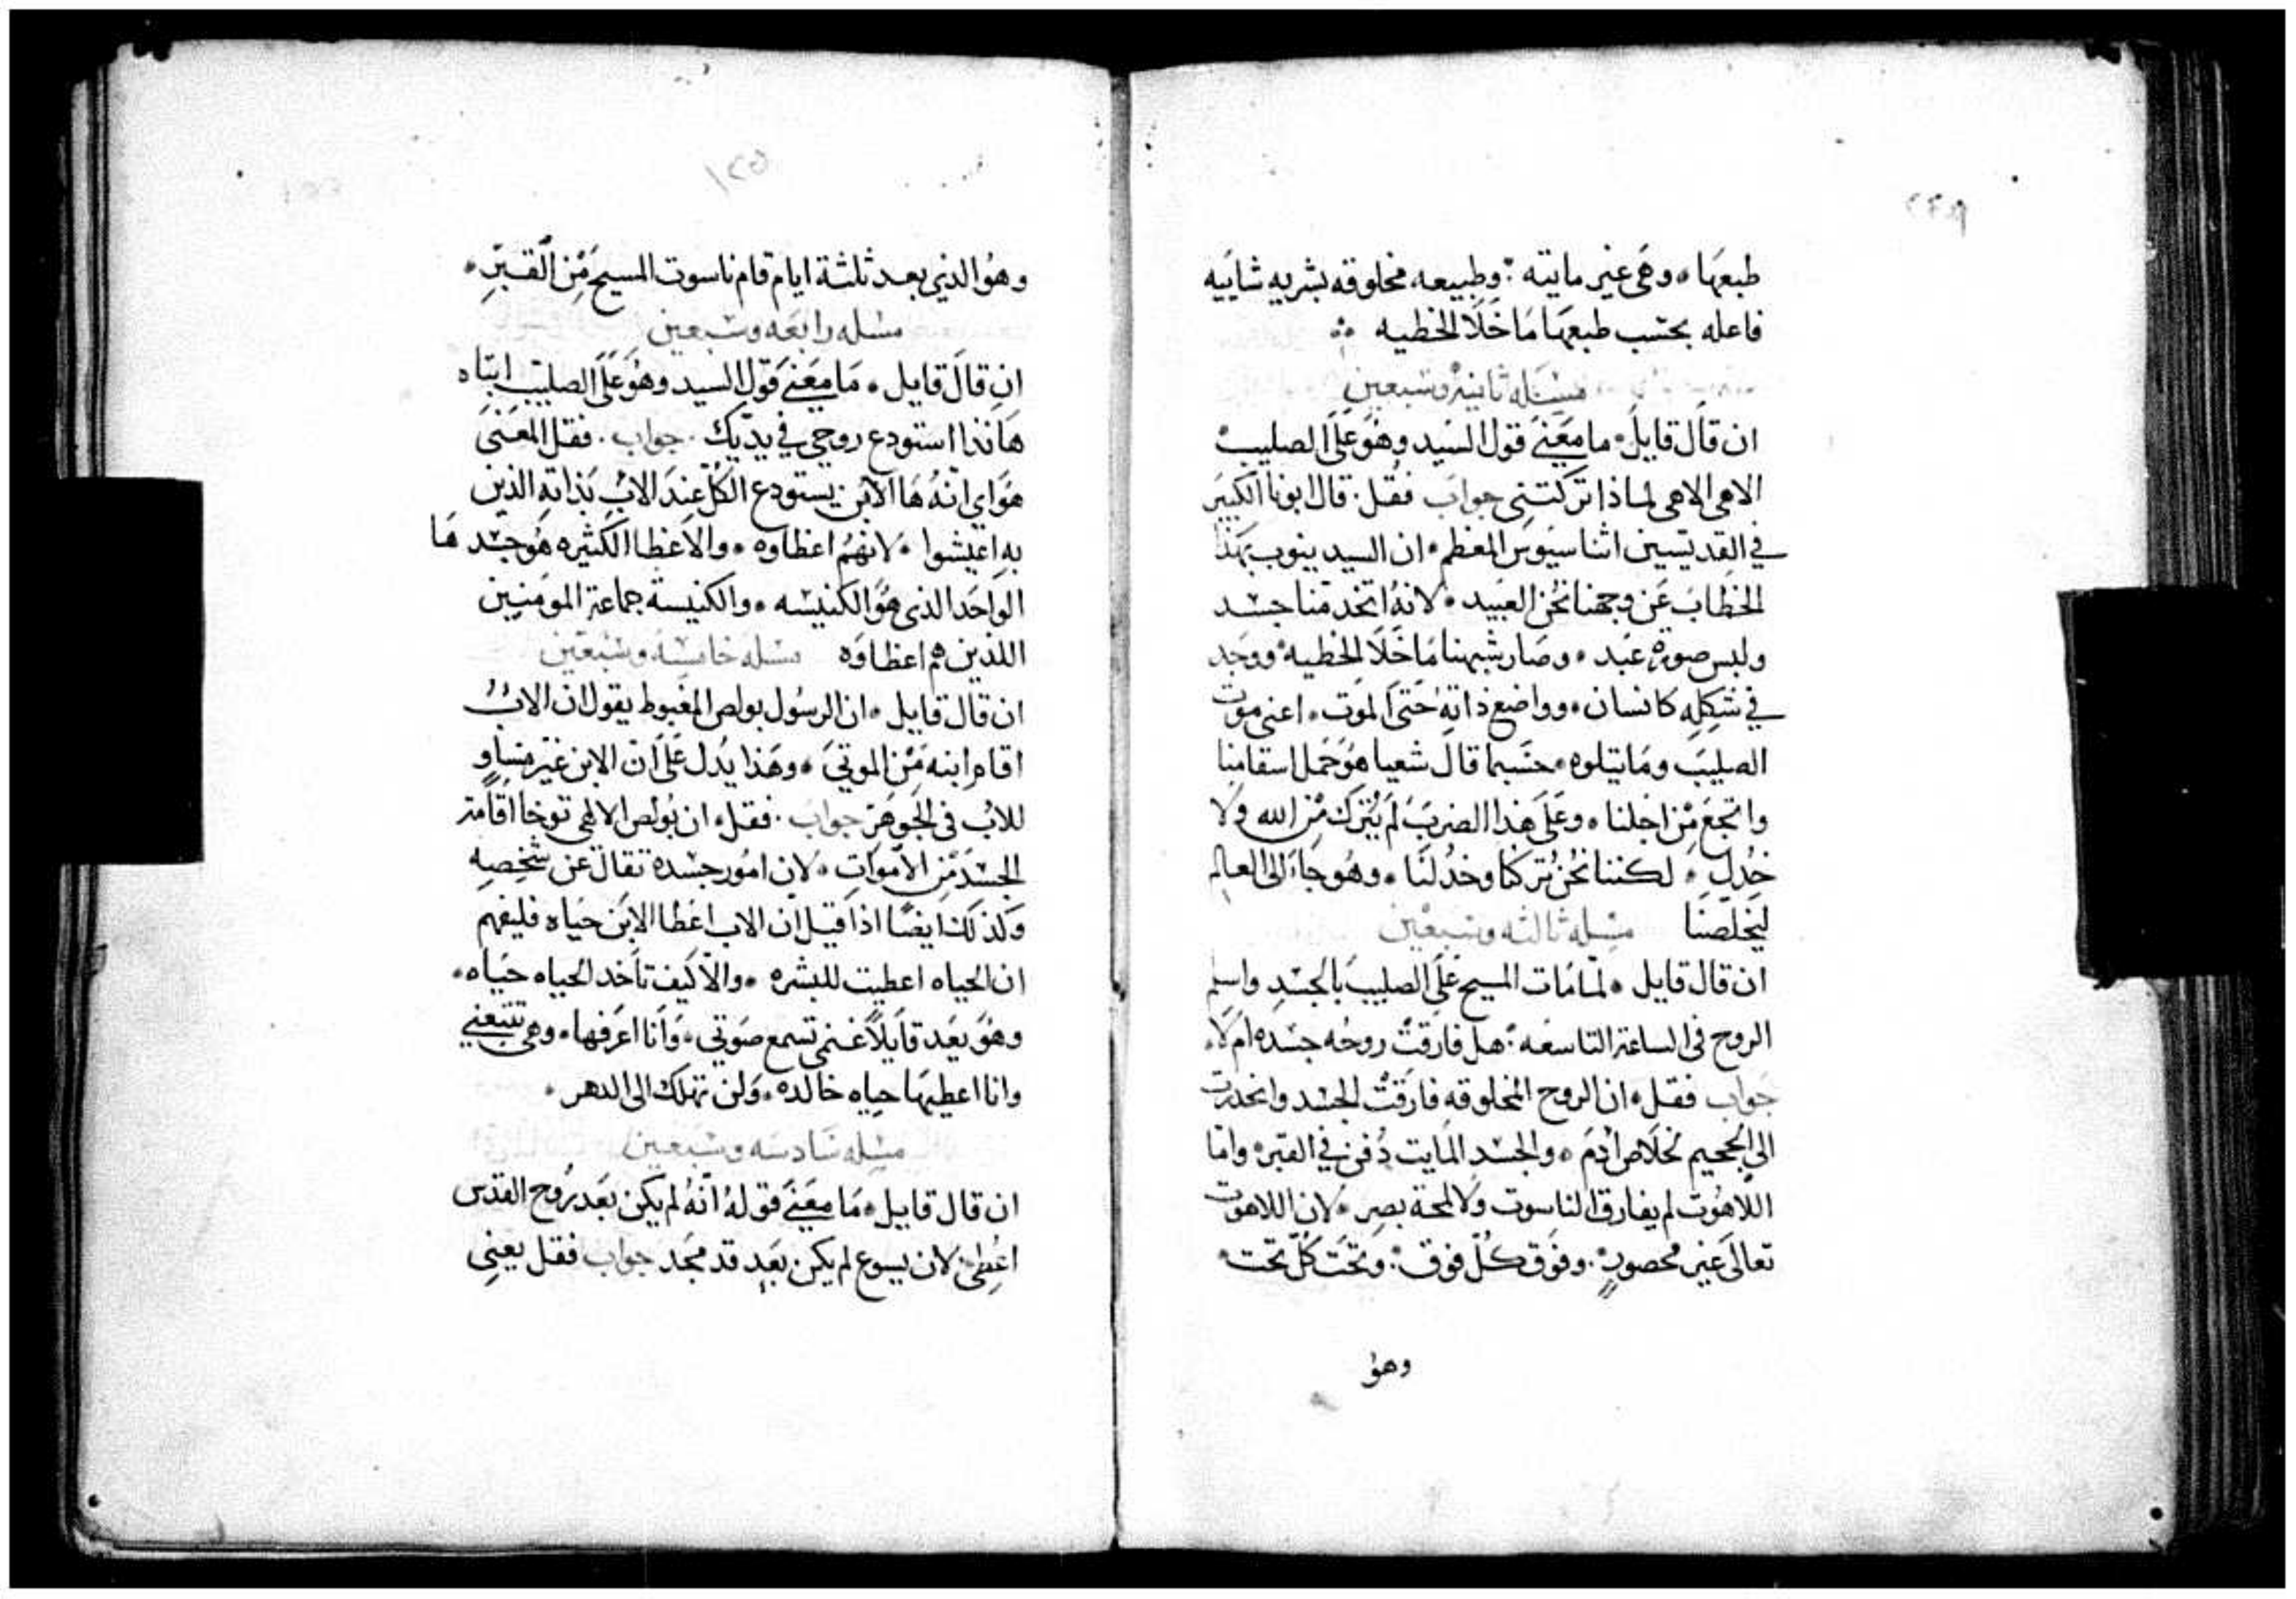 طبعها ٠ وهي غير مايته ؛ وطبيعه مخلوقه بشريه شاييه
فاعله بحسب طبعها ما خلا الخطيه
مسله ثانيه وسبعين
ان قال قايل ٠ ما معنى قول السيد وهو على الصليب
الاهي الاهي لماذا تركتني جواب فقل ٠ قال ابونا الكبير
في القديسين اثناسيوس المعظم ٠ ان السيد ينوب بهذا
الخطاب عن وجهنا نحن العبيد ٠ لانه اتخد منا جسد
ولبس صورة عبد ٠ وصار شبهنا ما خلا الخطيه ووجد
في شكله كانسان ٠ وواضع ذاته حتى الموت ٠ اعني موت
الصليب وما يتلوه ٠ حسبما قال شعيا هو حمل اسقامنا
واتجع من اجلنا ٠ وعلى هذا الضرب لم يترك من الله ولا
خدل ٠ لكننا نحن تركنا وخدلنا ٠ وهو جا الى العالم
ليخلصنا مسله ثالثه وسبعين
ان قال قايل ٠ لما مات المسيح على الصليب بالجسد واسلم
الروح في الساعة التاسعه ؛ هل فارقت روحه جسده ام لا
جواب فقل ٠ ان الروح المخلوقه فارقت الجسد وانحدرت
الى الجحيم لخلاص ادم ٠ والجسد المايت دفن في القبر واما
اللاهوت لم يفارق الناسوت ولا لمحة بصر ٠ لان اللاهوت
تعالى غير محصور ٠ وفوق كل فوق ؛ وتحت كل تحت
وهو
١٢٥
وهو الذي بعد ثلثة ايام قام ناسوت المسيح من القبر ٠
مسله رابعه وسبعين
ان قال قايل ٠ ما معنى قول السيد وهو على الصليب ابتاه
هانذا استودع روحي في يديك ٠ جواب ٠ فقل المعنى
هو اي انه ها الابن يستودع الكل عند الاب بذاته الذين
به اعيشوا ٠ لانهم اعظاوه ٠ والاعظا الكثيره هو جسد ها
الواحد الذي هو الكنيسه ٠ والكنيسة جماعة المومنين
اللذين هم اعظاوه مسله خامسه وسبعين
ان قال قايل ٠ ان الرسول بولص المغبوط يقول ان الاب
اقام ابنه من الموتي ٠ وهذا يدل على ان الابن غير مساو
للاب في الجوهر جواب ٠ فقل ٠ ان بولص الالهي توخا اقامة
الجسد من الاموات ٠ لان امور جسده تقال عن شخصه
وكذلك ايضا اذا قيل ان الاب اعطا الابن حياه فليفهم
ان الحياه اعطيت للبشره ٠ والا كيف تاخد الحياه حياه ٠
وهو بعد قايلا غنمي تسمع صوتي ٠ وانا اعرفها ٠ وهي تتبعني
وانا اعطيها حياه خالده ٠ ولن تهلك الى الدهر ٠
مسله سادسه وسبعين
ان قال قايل ٠ ما معنى قوله انه لم يكن بعد روح القدس
اعطي لان يسوع لم يكن بعد قد مجد جواب فقل يعني